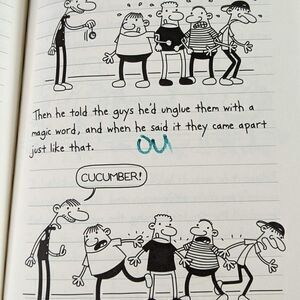 Then he told the guys he'd unglue them with a
magic word, and when he said it they came apart
just like that.
OU
CUCUMBER!